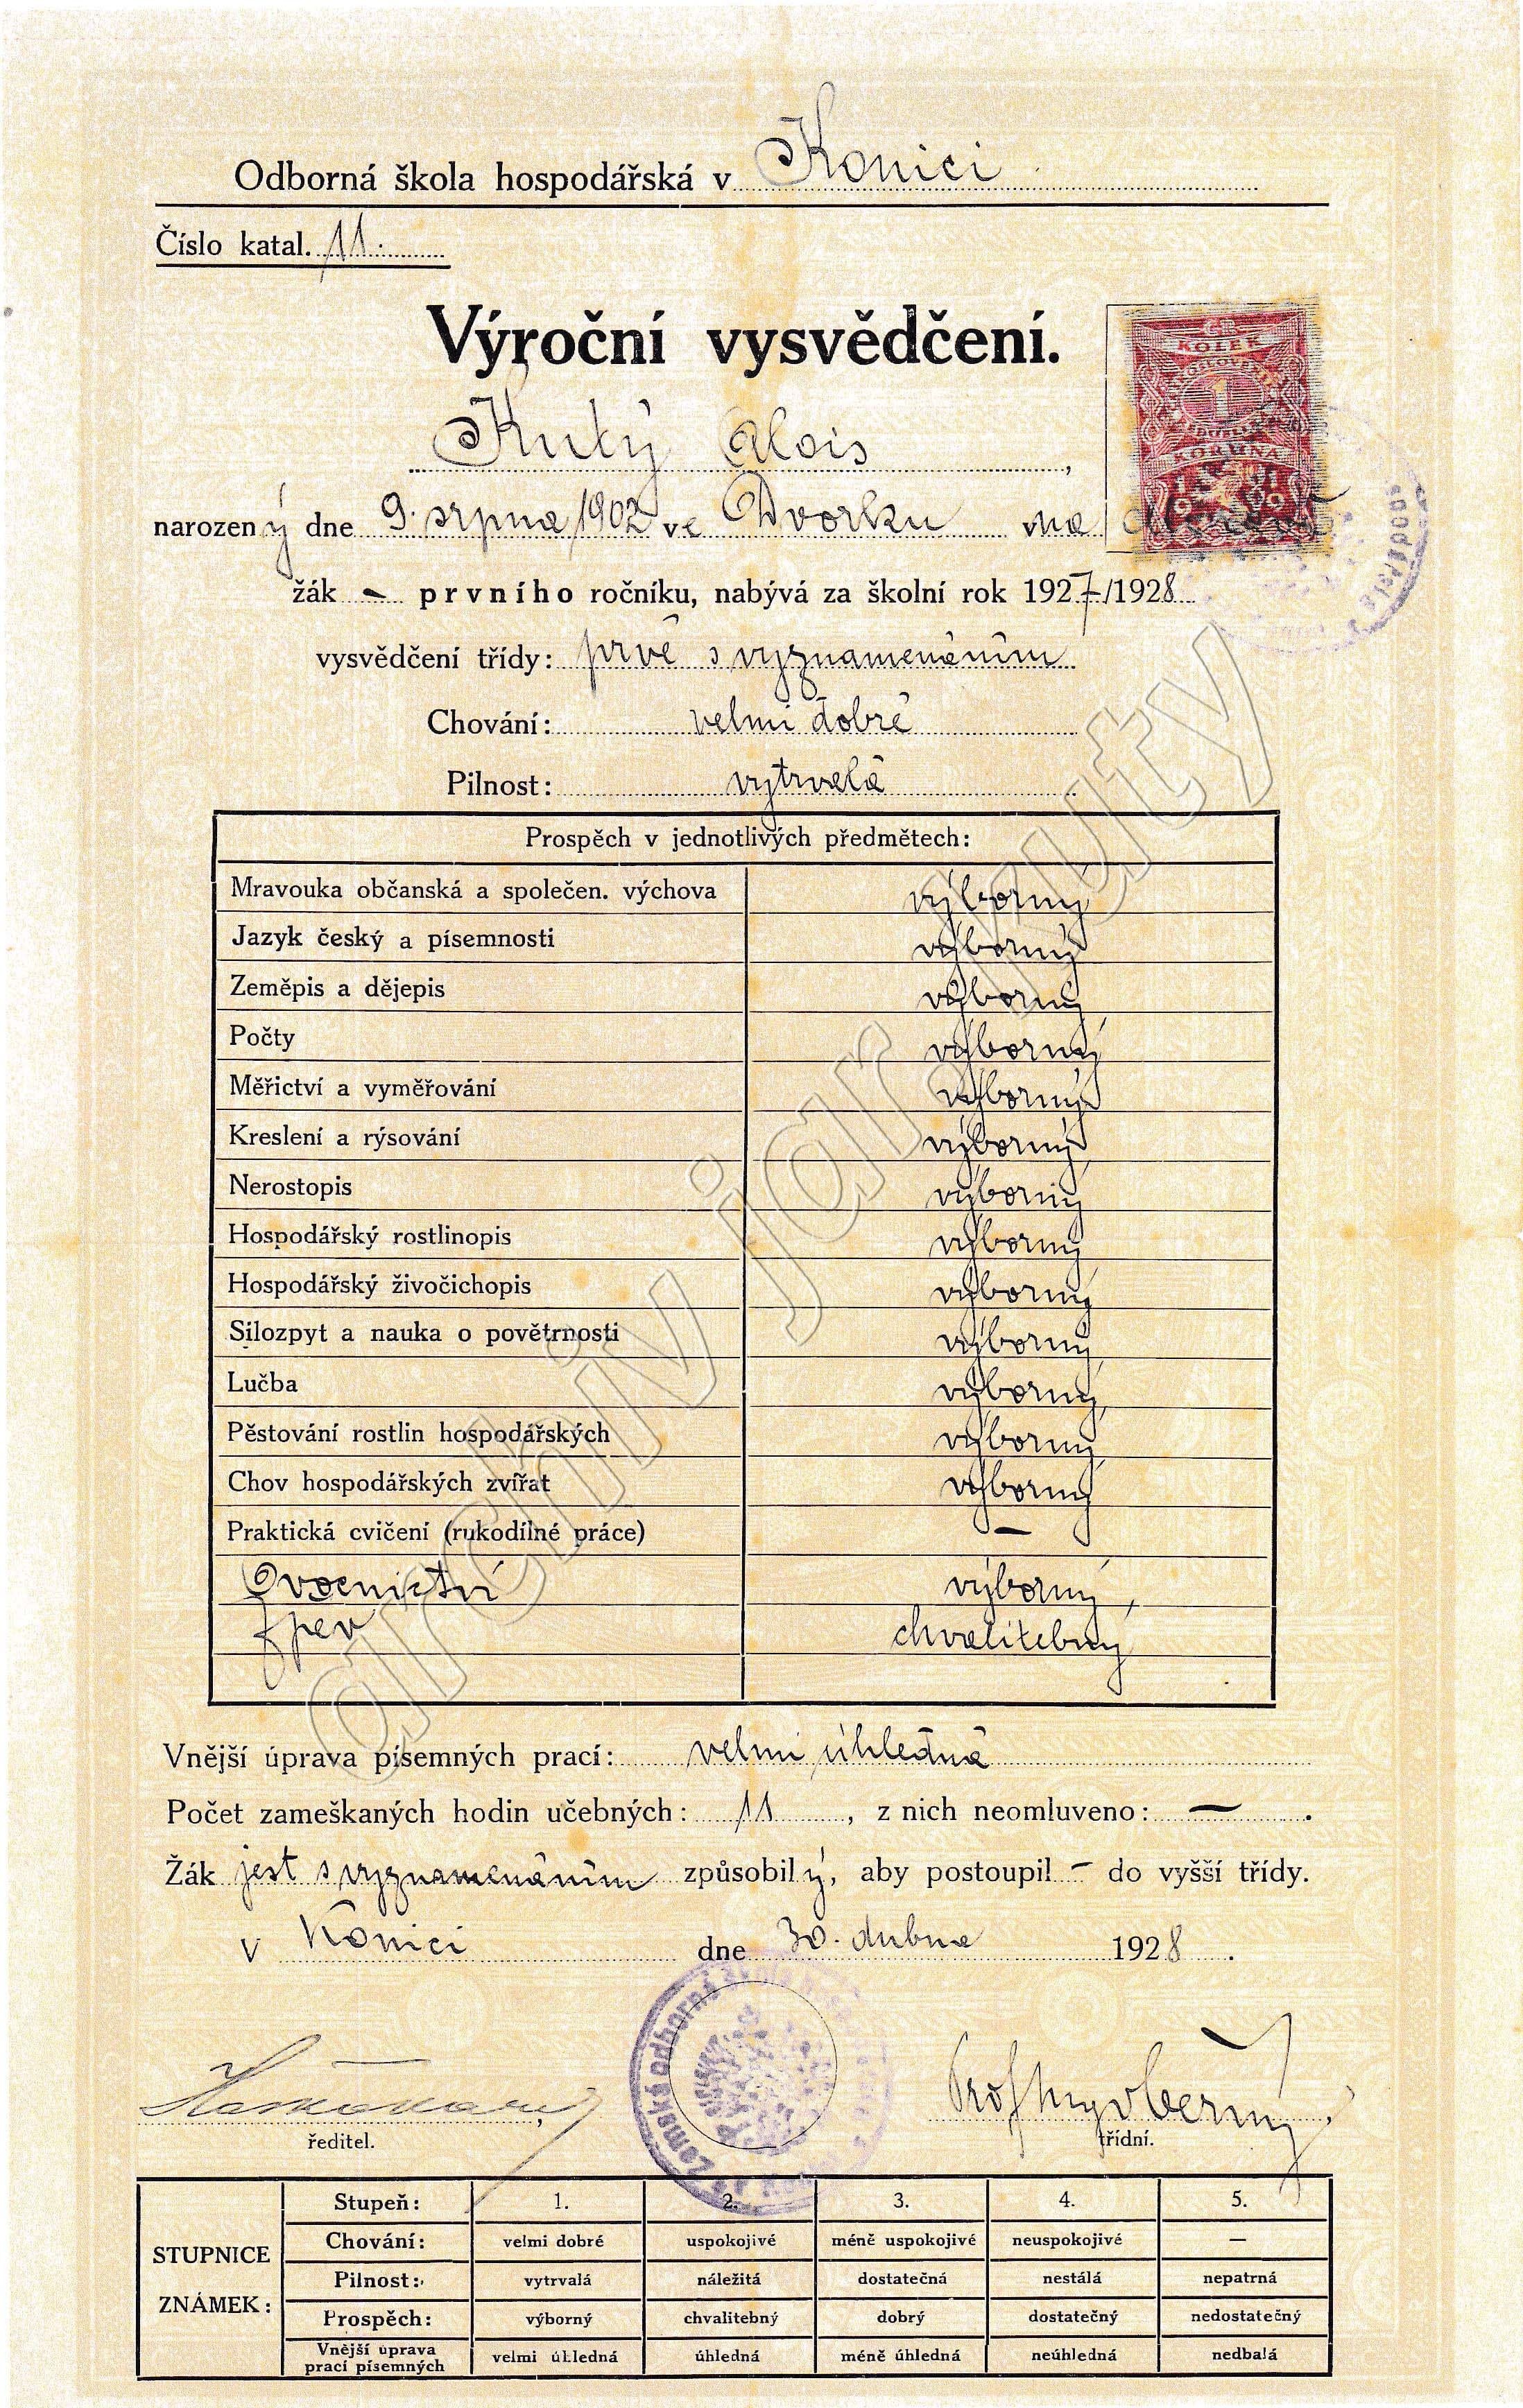 Odborná škola hospodářská v Konici
Číslo katal. 11.
Výroční vysvědčení.
KOLEK
1
KORUNA
Kutý Alois,
narozený dne 9. srpna 1902 ve Dvorku na
žák – prvního ročníku, nabývá za školní rok 1927/1928
vysvědčení třídy: prvé s vyznamenáním
Chování: velmi dobré
Pilnost: vytrvalá
Prospěch v jednotlivých předmětech:
Mravouka občanská a společen. výchova výborný
Jazyk český a písemnosti výborný
Zeměpis a dějepis výborný
Počty výborný
Měřictví a vyměřování výborný
Kreslení a rýsování výborný
Nerostopis výborný
Hospodářský rostlinopis výborný
Hospodářský živočichopis výborný
Silozpyt a nauka o povětrnosti výborný
Lučba výborný
Pěstování rostlin hospodářských výborný
Chov hospodářských zvířat výborný
Praktická cvičení (rukodílné práce) —
Ovocnictví výborný
Zpěv chvalitebný
archiv jar. kutý
Vnější úprava písemných prací: velmi úhledná
Počet zameškaných hodin učebných: 11, z nich neomluveno: —.
Žák jest s vyznamenáním způsobilý, aby postoupil – do vyšší třídy.
V Konici dne 30. dubna 1928.
Zemská odborná
ředitel.
třídní.
STUPNICE ZNÁMEK:
Stupeň: 1. 2. 3. 4. 5.
Chování: velmi dobré uspokojivé méně uspokojivé neuspokojivé —
Pilnost: vytrvalá náležitá dostatečná nestálá nepatrná
Prospěch: výborný chvalitebný dobrý dostatečný nedostatečný
Vnější úprava prací písemných velmi úhledná úhledná méně úhledná neúhledná nedbalá